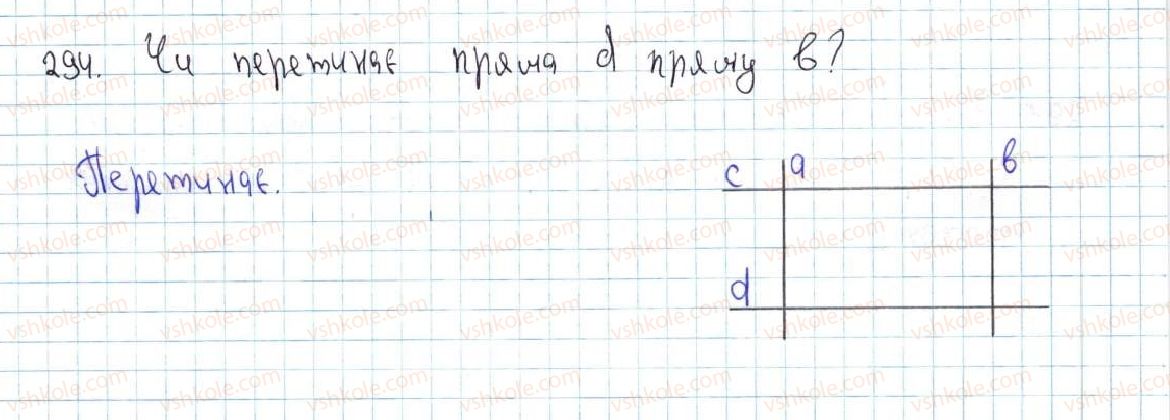 294. Чи перетинає пряма d пряму b?
Перетинає.
c a b
d
vshkole.com